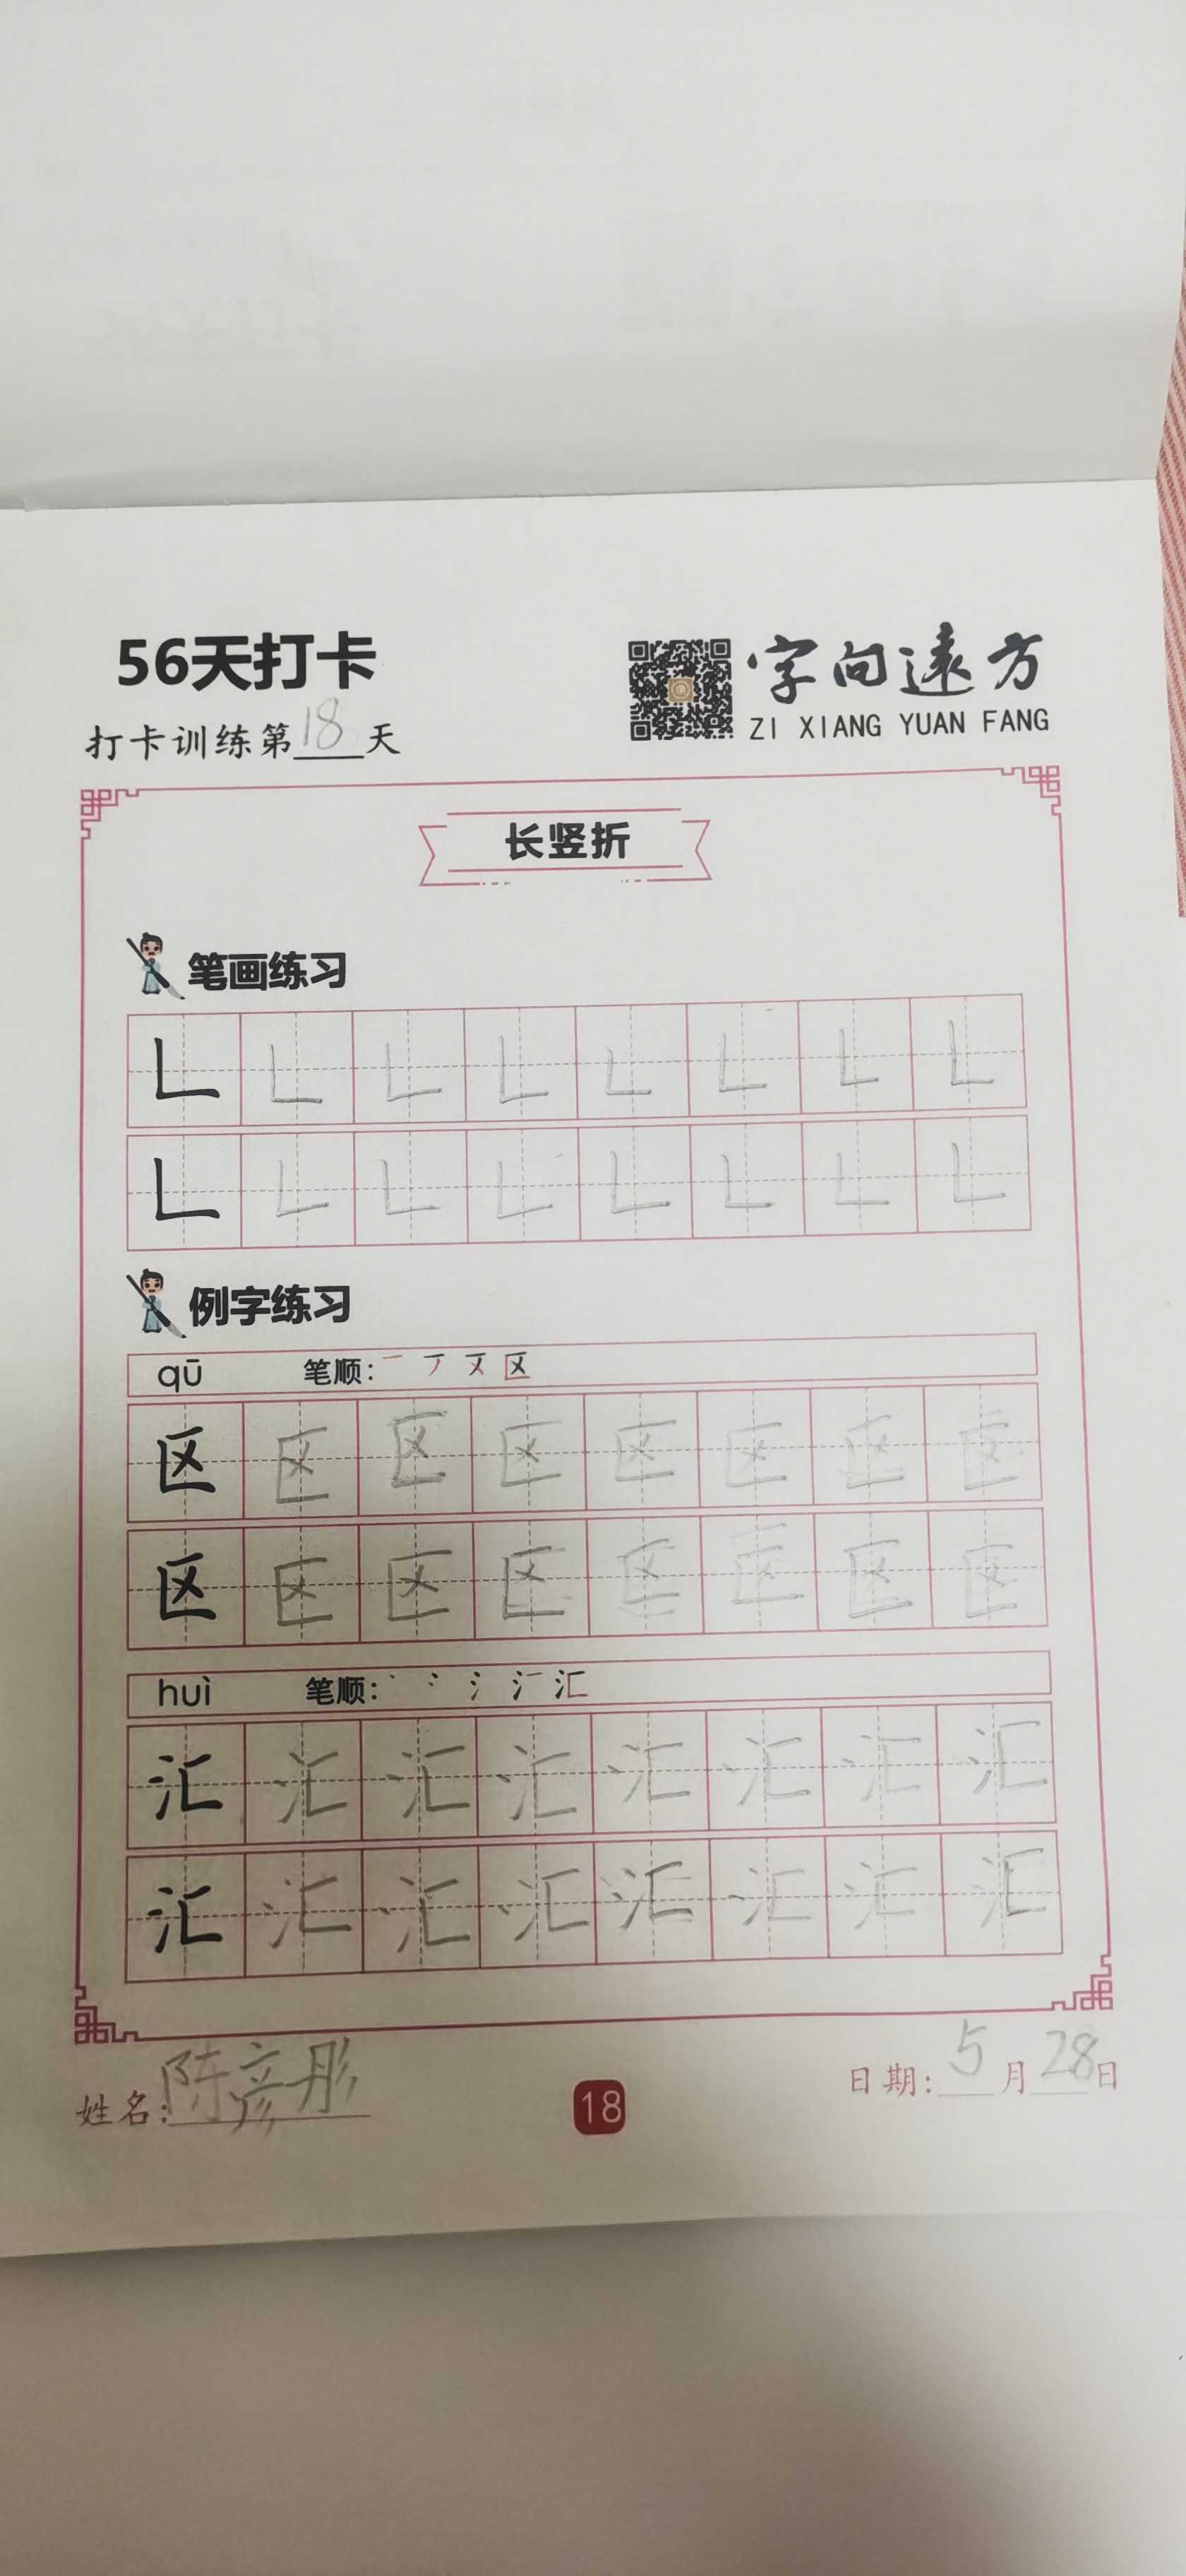 56天打卡
字向遠方
ZI XIANG YUAN FANG
打卡训练第18天
长竖折
笔画练习
𠃊 𠃊 𠃊 𠃊 𠃊 𠃊 𠃊 𠃊
𠃊 𠃊 𠃊 𠃊 𠃊 𠃊 𠃊 𠃊
例字练习
qū 笔顺: 一 丆 又 区
区 区 区 区 区 区 区 区
区 区 区 区 区 区 区 区
huì 笔顺: 丶 冫 氵 汇 汇
汇 汇 汇 汇 汇 汇 汇 汇
汇 汇 汇 汇 汇 汇 汇 汇
姓名: 陈彦彤
18
日期: 5月28日